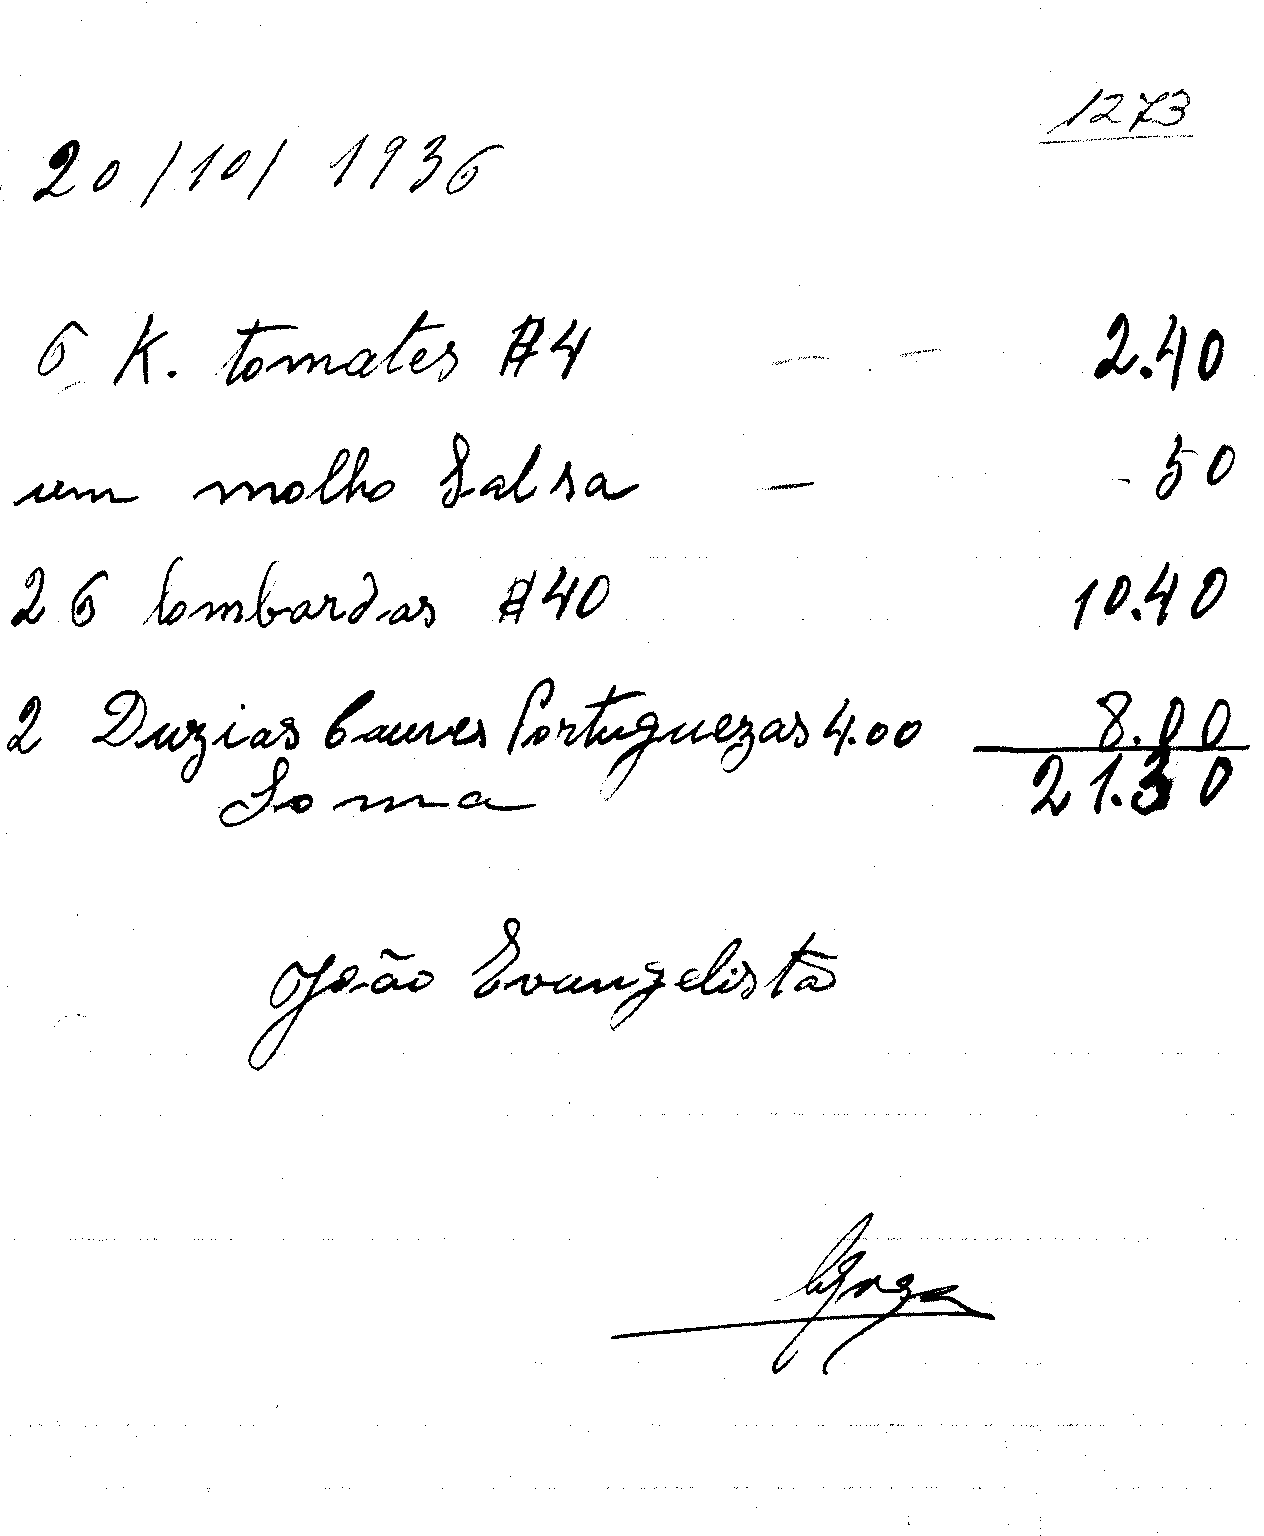 1273
20/10/1936
6 K. tomates $4 — — 2.40
um molho Salsa — - 50
26 lombardas $40 10.40
2 Duzias Couves Portuguezas 4.00 8.00
Soma 21.30
João Evangelista